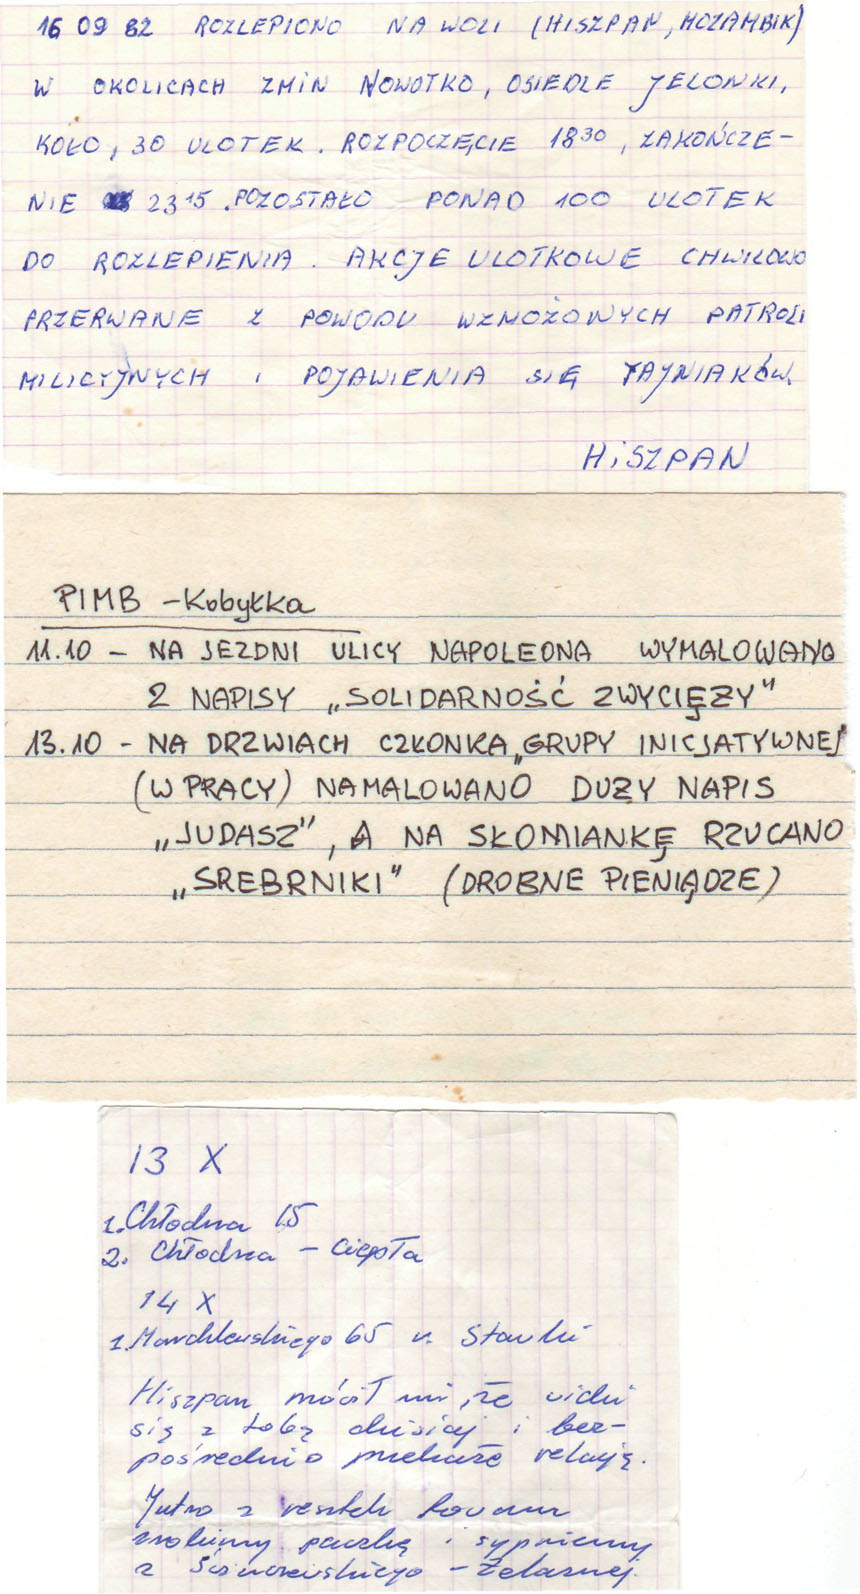 16 09 82 ROZLEPIONO NA WOLI (HISZPAN, MOZAMBIK)
W OKOLICACH ZMiN NOWOTKO, OSIEDLE JELONKI,
KOŁO, 30 ULOTEK. ROZPOCZĘCIE 18³⁰, ZAKOŃCZE-
NIE 23¹⁵. POZOSTAŁO PONAD 100 ULOTEK
DO ROZLEPIENIA. AKCJE ULOTKOWE CHWILOWO
PRZERWANE Z POWODU WZMOŻONYCH PATROLI
MILICYJNYCH I POJAWIENIA SIĘ TAJNIAKÓW.
HiSZPAN
PIMB - Kobyłka
11.10 - NA JEZDNI ULICY NAPOLEONA WYMALOWANO
2 NAPISY „SOLIDARNOŚĆ ZWYCIĘŻY"
13.10 - NA DRZWIACH CZŁONKA „GRUPY INICJATYWNEJ
(W PRACY) NAMALOWANO DUŻY NAPIS
„JUDASZ", A NA SŁOMIANKĘ RZUCANO
„SREBRNIKI" (DROBNE PIENIĄDZE)
13 X
1. Chłodna 15
2. Chłodna - Ciepła
14 X
1. Marchlewskiego 65 r. Stawki
Hiszpan mówił mi, że widzi
się z tobą dzisiaj i bez-
pośrednio przekaże relację.
Jutro z resztek towaru
zrobimy paczkę i sypniemy
z Świerczewskiego - Żelaznej.